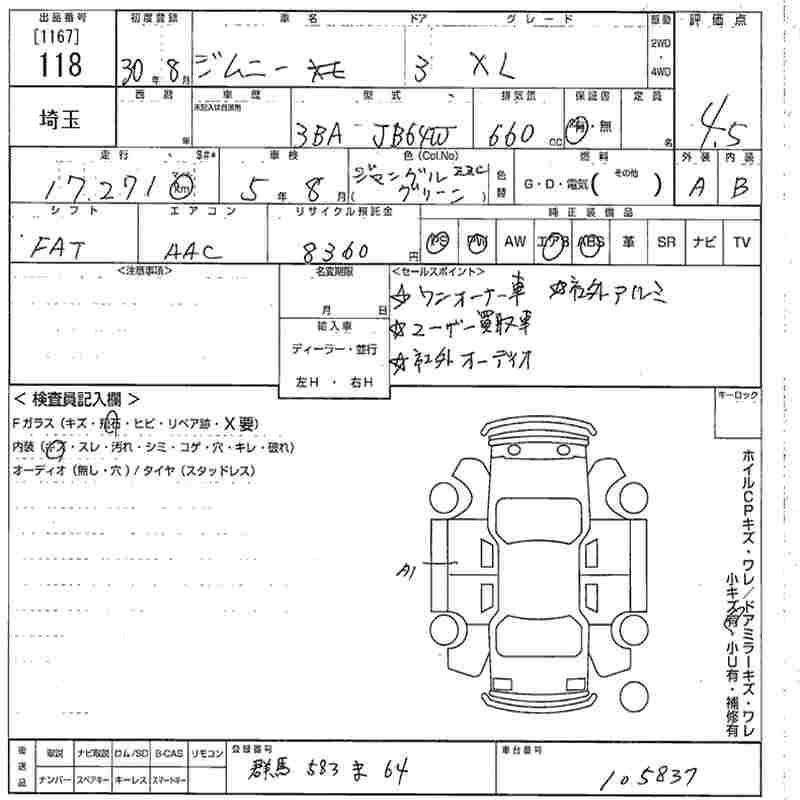 出品番号 初度登録 車名 ドア グレード 駆動 評価点
[1167] 2WD
118 30年8月 ジムニー 3 XL ・
4WD
西暦 車歴 型式 排気量 保証書 定員
埼玉 未記入は自家用 4.5
年 3BA JB64W 660 cc 有・無 名
走行 $#* 車検 色(Col.No) 燃料 外装 内装
17,271 マイル km 5年8月 (ジャングルグリーン) ZZC 色替 G・D・電気( その他 ) A B
シフト エアコン リサイクル預託金 純正装備品
FAT AAC 8360円 PS PW AW エアB ABS 革 SR ナビ TV
<注意事項> 名変期限 <セールスポイント>
月 日 ☆ワンオーナー車 ☆社外アルミ
輸入車 ☆ユーザー買取車
ディーラー・並行 ☆社外オーディオ
左H ・ 右H
<検査員記入欄> キーロック
Fガラス(キズ・飛石・ヒビ・リペア跡・X要)
内装(キズ・スレ・汚れ・シミ・コゲ・穴・キレ・破れ)
オーディオ(無し・穴)/タイヤ(スタッドレス)
A1
ホイルCPキズ・ワレ/ドアミラーキズ・ワレ
小キズ有・小U有・補修有
後送品 取説 ナビ取説 ロム/SD B-CAS リモコン 登録番号 車台番号
ナンバー スペアキー キーレス スマートキー 群馬 583 ま 64 105837